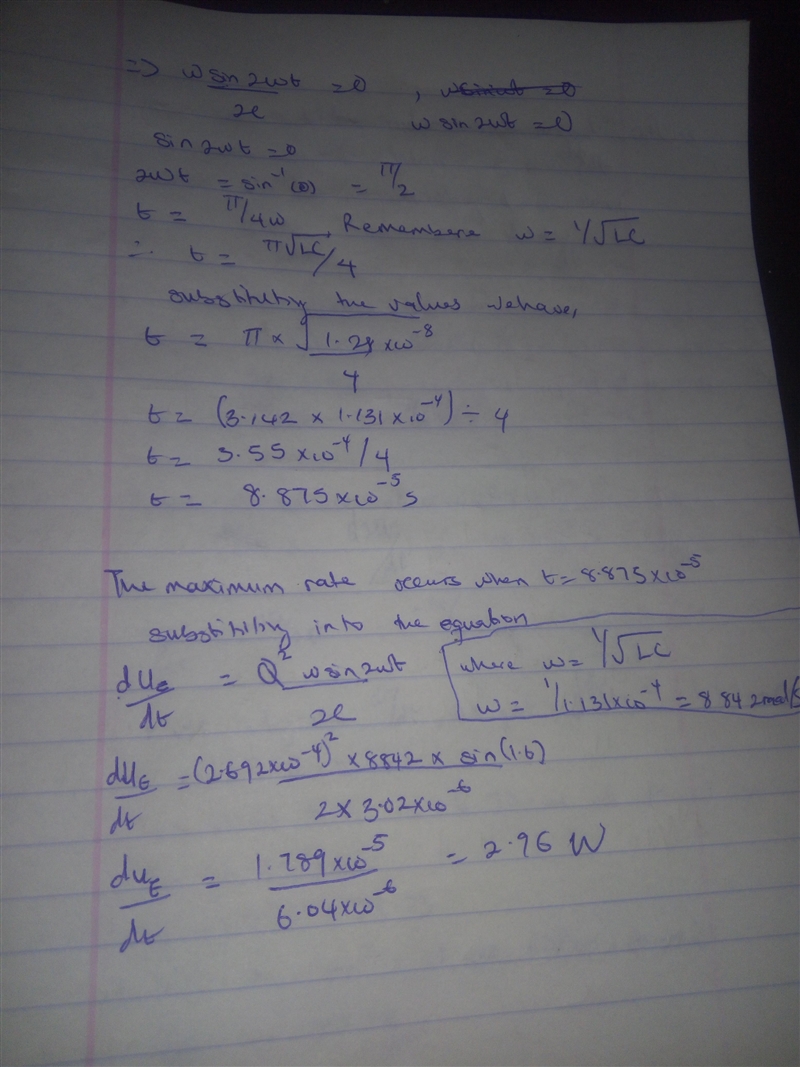 => w sin 2wt / 2c = 0 , wsinwt = 0
w sin 2wt = 0
sin 2wt = 0
2wt = sin⁻¹(0) = π/2
t = π/4w Remembere w = 1/√LC
∴ t = π√LC/4
substitiltiy the values wehave,
t = π x √1.28 x10⁻⁸ / 4
t = (3.142 x 1.131 x10⁻⁴) ÷ 4
t = 3.55 x10⁻⁴ / 4
t = 8.875 x10⁻⁵ s
The maximum rate occurs when t = 8.875 x10⁻⁵
substitiltiy into the equation
duE/dt = Q² w sin 2wt / 2c
where w = 1/√LC
w = 1/1.131x10⁻⁴ = 8842 rad/s
duE/dt = (2.692x10⁻⁴)² x 8842 x sin(1.6) / 2 x 3.02x10⁻⁶
duE/dt = 1.789 x10⁻⁵ / 6.04x10⁻⁶ = 2.96 W